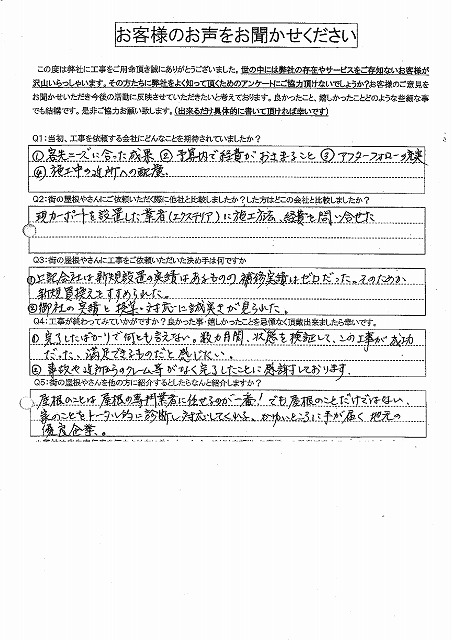 お客様のお声をお聞かせください
この度は弊社に工事をご用命頂き誠にありがとうございました。世の中には弊社の存在やサービスをご存知ないお客様が
沢山いらっしゃいます。その方たちに弊社をよく知って頂くためのアンケートにご協力頂けないでしょうか？お客様のご意見を
お聞かせいただき今後の活動に反映させていただきたいと考えております。良かったこと、嬉しかったことどのような些細な事
でも結構です。是非ご協力お願い致します。（出来るだけ具体的に書いて頂ければ幸いです）
Q1：当初、工事を依頼する会社にどんなことを期待されていましたか？
①客先ニーズに合った成果 ②予算内で経費がおさまること ③アフターフォローの充実
④施工中の近所への配慮
Q2：街の屋根やさんにご依頼いただく際に他社と比較しましたか？した方はどこの会社と比較しましたか？
現カーポートを設置した業者（エクステリア）に施工方法、経費を問い合せた
Q3：街の屋根やさんに工事をご依頼いただいた決め手は何ですか
①上記会社は新規設置の実績はあるものの補修実績はゼロだった。そのためか、
新規買換えをすすめられた。
②御社の実績と提案・対応に誠実さが見られた。
Q4：工事が終わってみていかがですか？良かった事・嬉しかったことを忌憚なく頂戴出来ましたら幸いです。
① 完了したばかりで何とも言えない。数カ月間、状態を検証して、この工事が成功
だった、満足できるものだと感じたい。
② 事故や近所からのクレーム等がなく完了したことに感謝しております。
Q5：街の屋根やさんを他の方に紹介するとしたらなんと紹介しますか？
屋根のことは屋根の専門業者に任せるのが一番！でも屋根のことだけではない、
家のことをトータル的に診断し対応してくれる、かゆいところに手が届く地元の
優良企業。